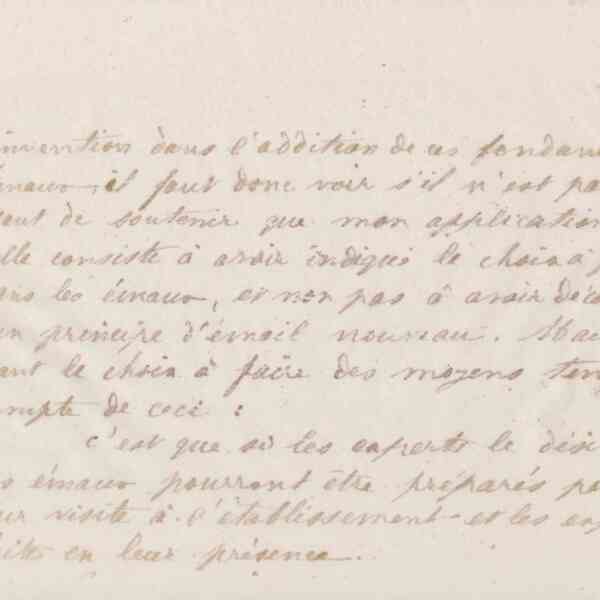 invention dans l'addition de ces fondan
émaux, il faut donc voir s'il n'est pa
de soutenir que mon application
elle consiste à avoir indiqué le choix à
ans les émaux, et non pas à avoir déco
un principe d'émail nouveau.
ant le choix à faire des moyens ten
ompte de ceci :
c'est que si les experts le dési
s émaux pourront être préparés po
ur visite à l'établissement et les es
aits en leur présence.